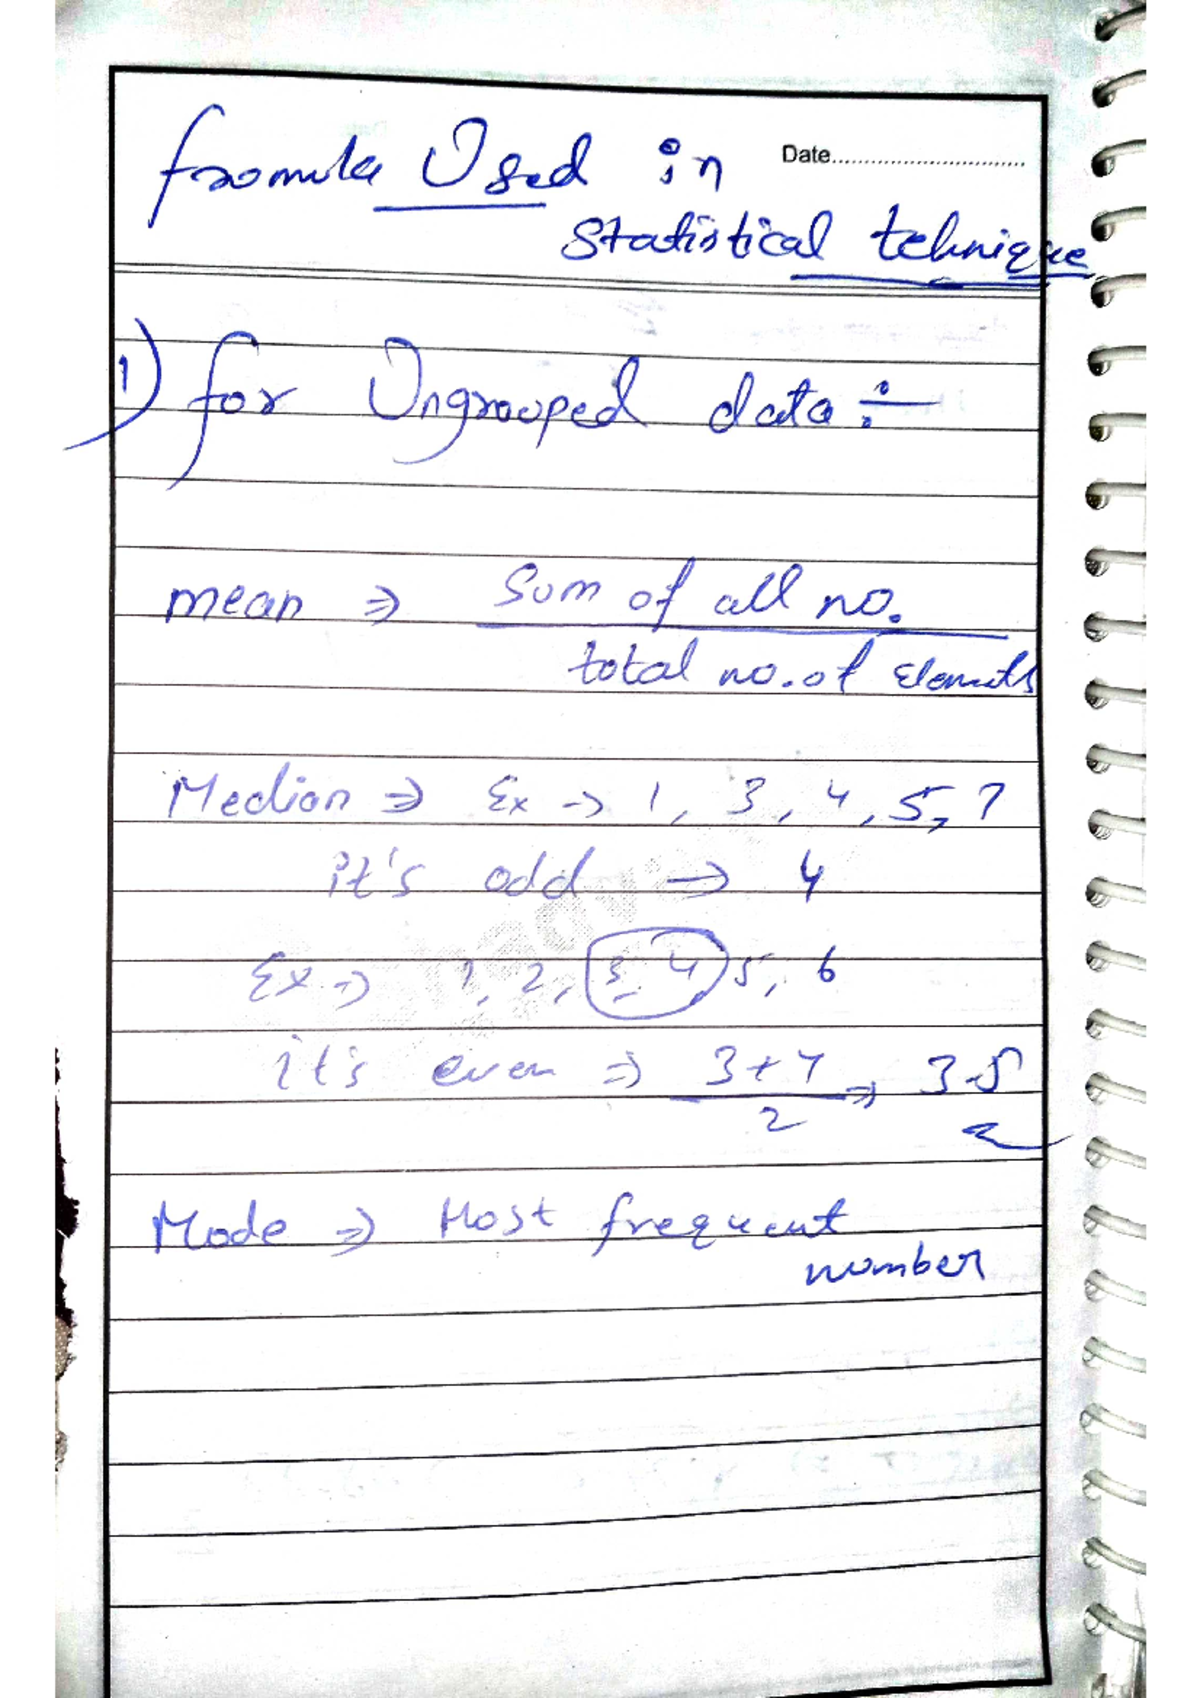 fromula Used in
Date..............................
Statistical tehnique
1) for Ungrouped data :-
mean ⇒ Sum of all no.
total no. of Elements
Median ⇒ Ex → 1, 3, 4, 5, 7
it's odd → 4
Ex → 1, 2, 3, 4, 5, 6
it's even ⇒ 3+4 ⇒ 3.5
2
Mode ⇒ Most frequent
number